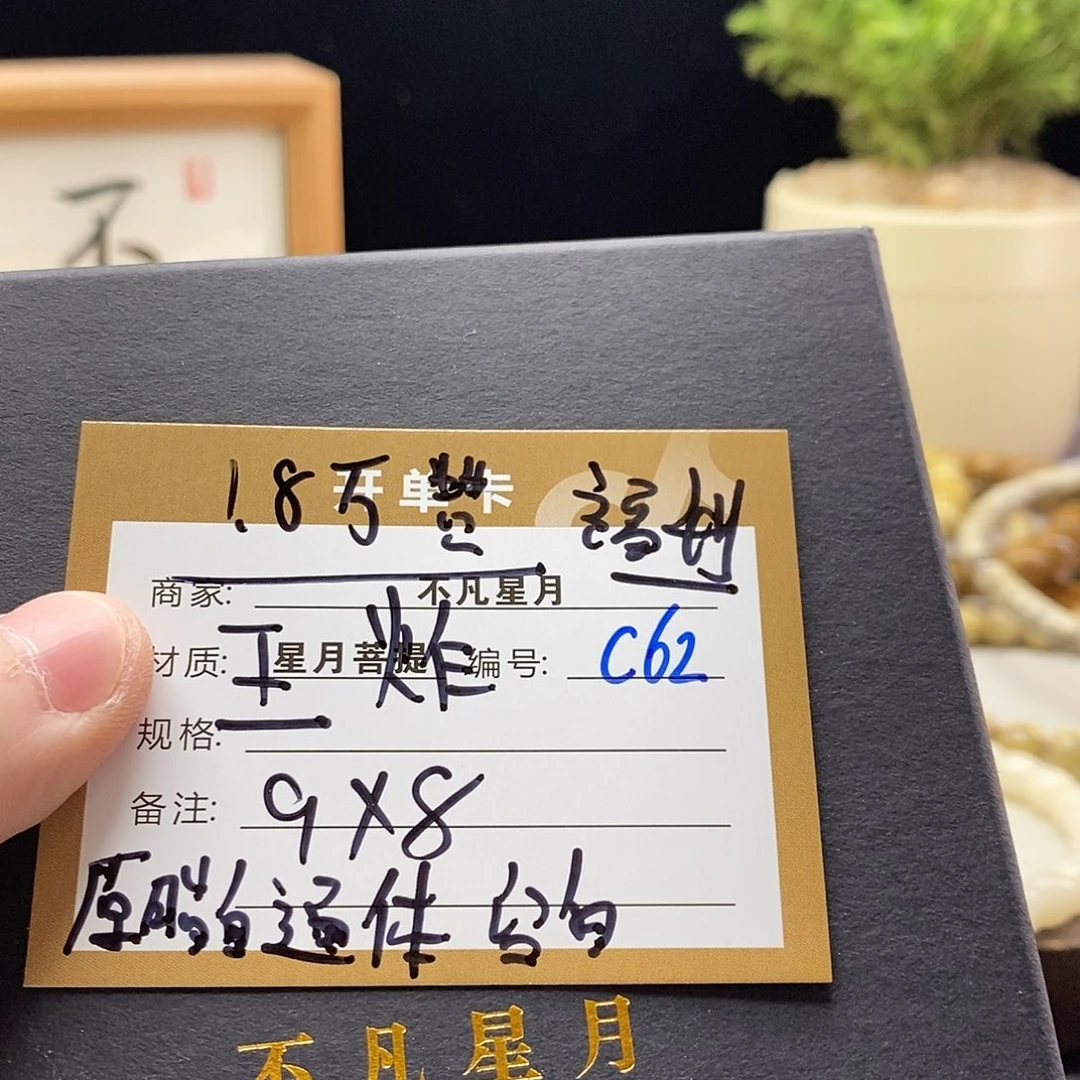 不
开单卡
1.8万赞
商家: 不凡星月
王炸
材质: 星月菩提 编号: C62
规格:
备注: 9X8
原脂白通体 留白
不凡星月